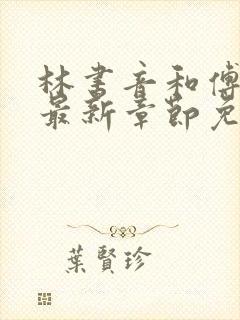 林书音和傅
最新章節免
葉賢珍